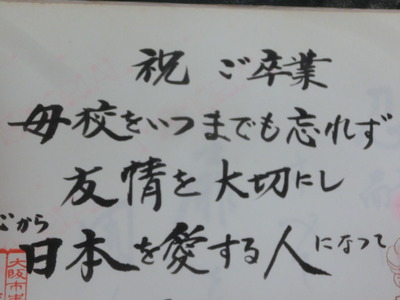 祝 ご卒業
母校をいつまでも忘れず
友情を大切にし
心から
日本を愛する人になって
大阪市